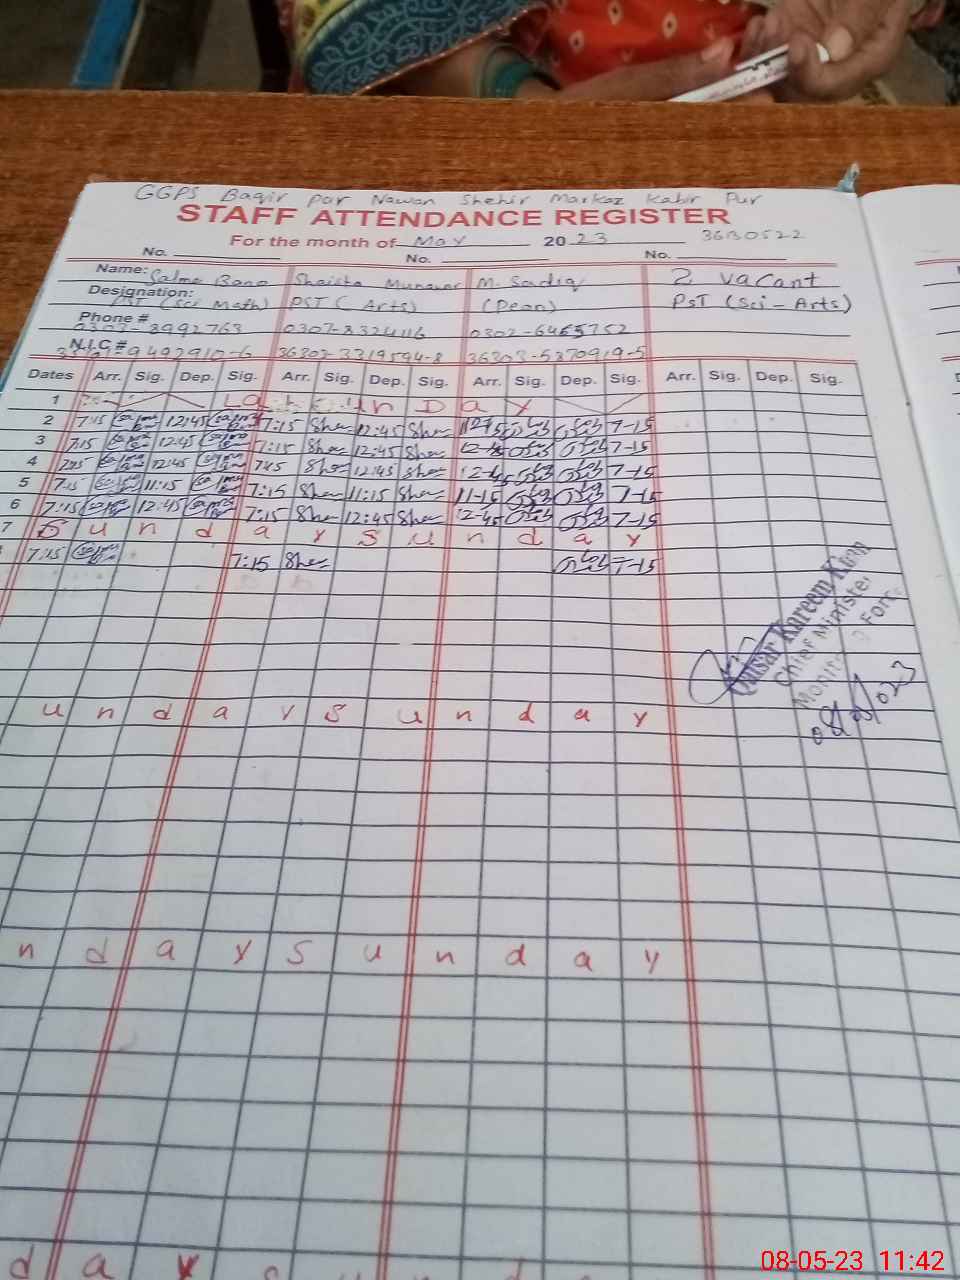 GGPS Baqir par Nawan Shehir Markaz Kabir Pur
STAFF ATTENDANCE REGISTER
For the month of May 2023 36130522
No. No. No.
Name: Salma Bano Shaista Munawar M. Sadiq 2 Vacant
Designation: PST (Sci Math) PST (Arts) (Peon) PST (Sci-Arts)
Phone # 0307-8992763 0307-8324116 0302-6465752
N.I.C # 9492910-6 36302-3319594-8 36303-5870919-5
Dates Arr. Sig. Dep. Sig. Arr. Sig. Dep. Sig. Arr. Sig. Dep. Sig. Arr. Sig. Dep. Sig.
1 Labour Day
2 7:15 Salma 12:45 Salma 7:15 Sha 12:45 Sha 12-45 7-15
3 7:15 Salma 12:45 Salma 7:15 Sha 12:45 Sha 12-45 7-15
4 7:15 Salma 12:45 Salma 7:15 Sha 12:45 Sha 12-45 7-15
5 7:15 Salma 11:15 Salma 7:15 Sha 11:15 Sha 11-15 7-15
6 7:15 Salma 12:45 Salma 7:15 Sha 12:45 Sha 12-45 7-15
7 S u n d a y S u n d a y
7:15 Salma 7:15 Sha 7-15
Qaisar Kareem Khan
Chief Minister
Monito Forc
08/05/023
u n d a y S u n d a y
n d a y S u n d a y
d a y
08-05-23 11:42